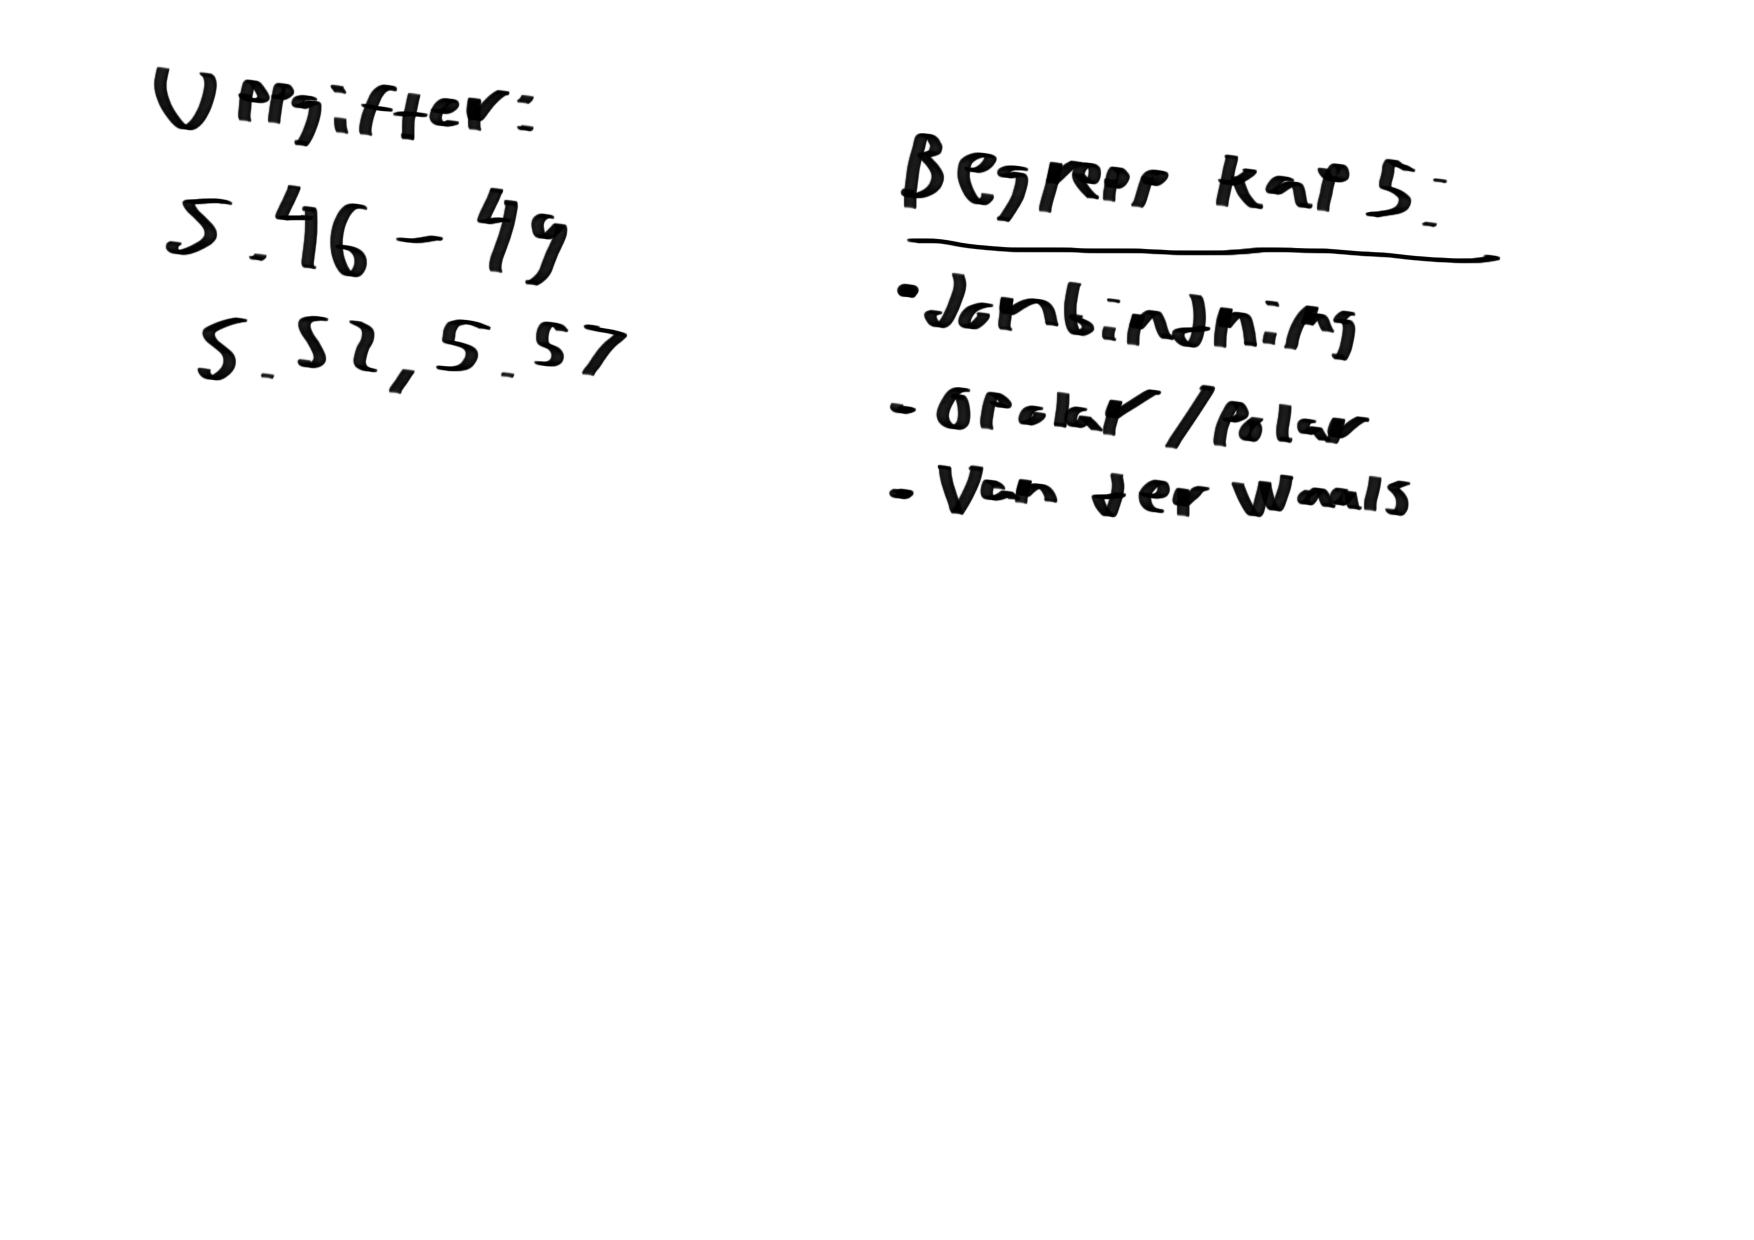 Uppgifter:
5.46-49
5.52, 5.57
Begrepp kap 5:
• Jonbindning
- Opolar/polar
- Van der Waals